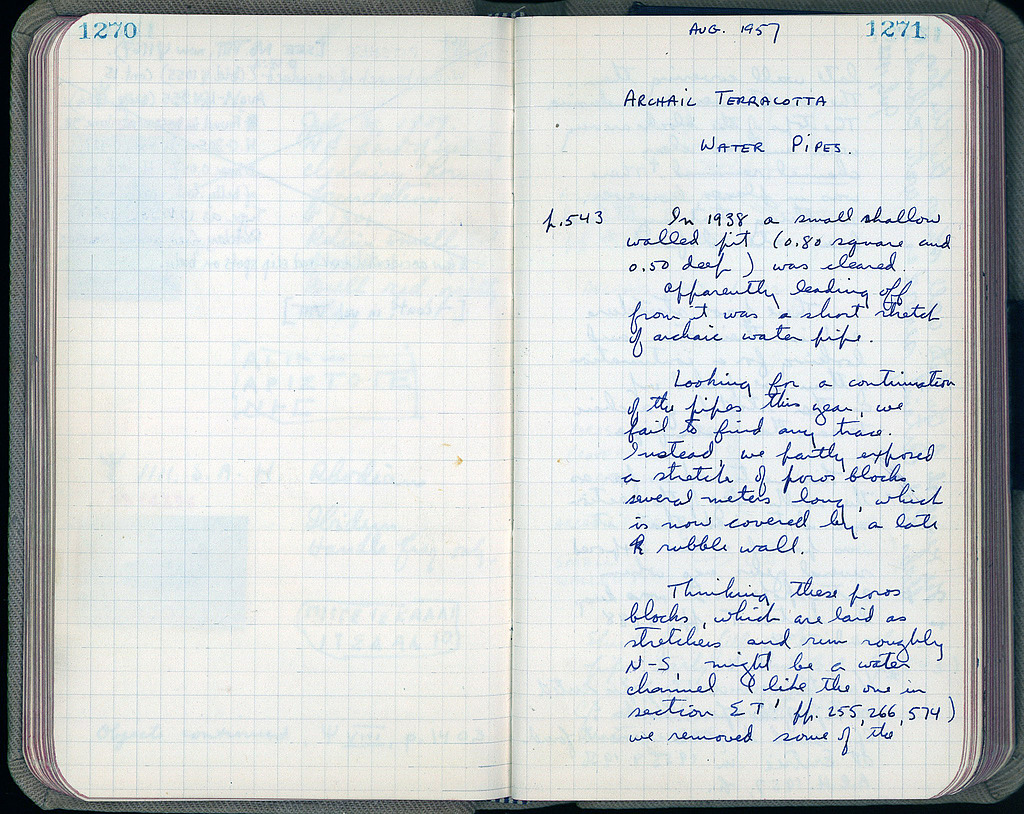 1270
AUG. 1957
1271
ARCHAIC TERRACOTTA
WATER PIPES.
p.543 In 1938 a small shallow
walled pit (0.80 square and
0.50 deep) was cleared.
Apparently leading off
from it was a short stretch
of archaic water pipe.
Looking for a continuation
of the pipes this year, we
fail to find any trace.
Instead, we partly exposed
a stretch of poros blocks
several meters long, which
is now covered by a late
R rubble wall.
Thinking these poros
blocks, which are laid as
stretchers and run roughly
N-S, might be a water
channel (like the one in
section ΣΤ' pp. 255, 266, 574)
we removed some of the